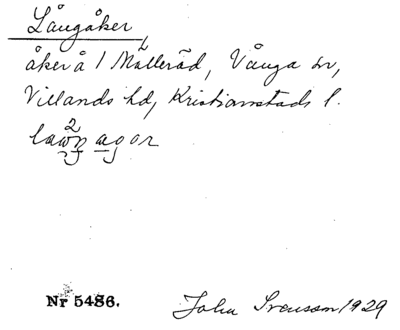 Långåker
åker å 1 Mölleröd, Vånga sn,
Villands hd, Kristianstads l.
Nr 5486. John Svensson 1929